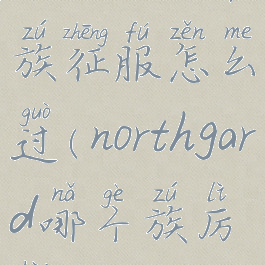 zú zhēng fú zěn me
族征服怎么
guò
过(northgar
nǎ gè zú lì
d哪个族厉